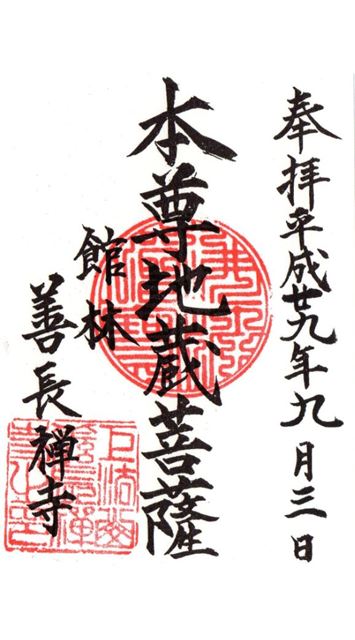 奉拝平成廿九年九月三日
本尊地蔵菩薩
館林
善長禅寺